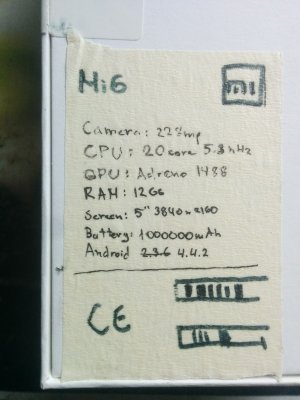 Mi6
mi
Camera: 227mp
CPU: 20core 5.3hHz
GPU: Adreno 1488
RAM: 12GG
Screen: 5" 3840x2160
Battery: 1000000mAh
Android 2.3.6 4.4.2
CE